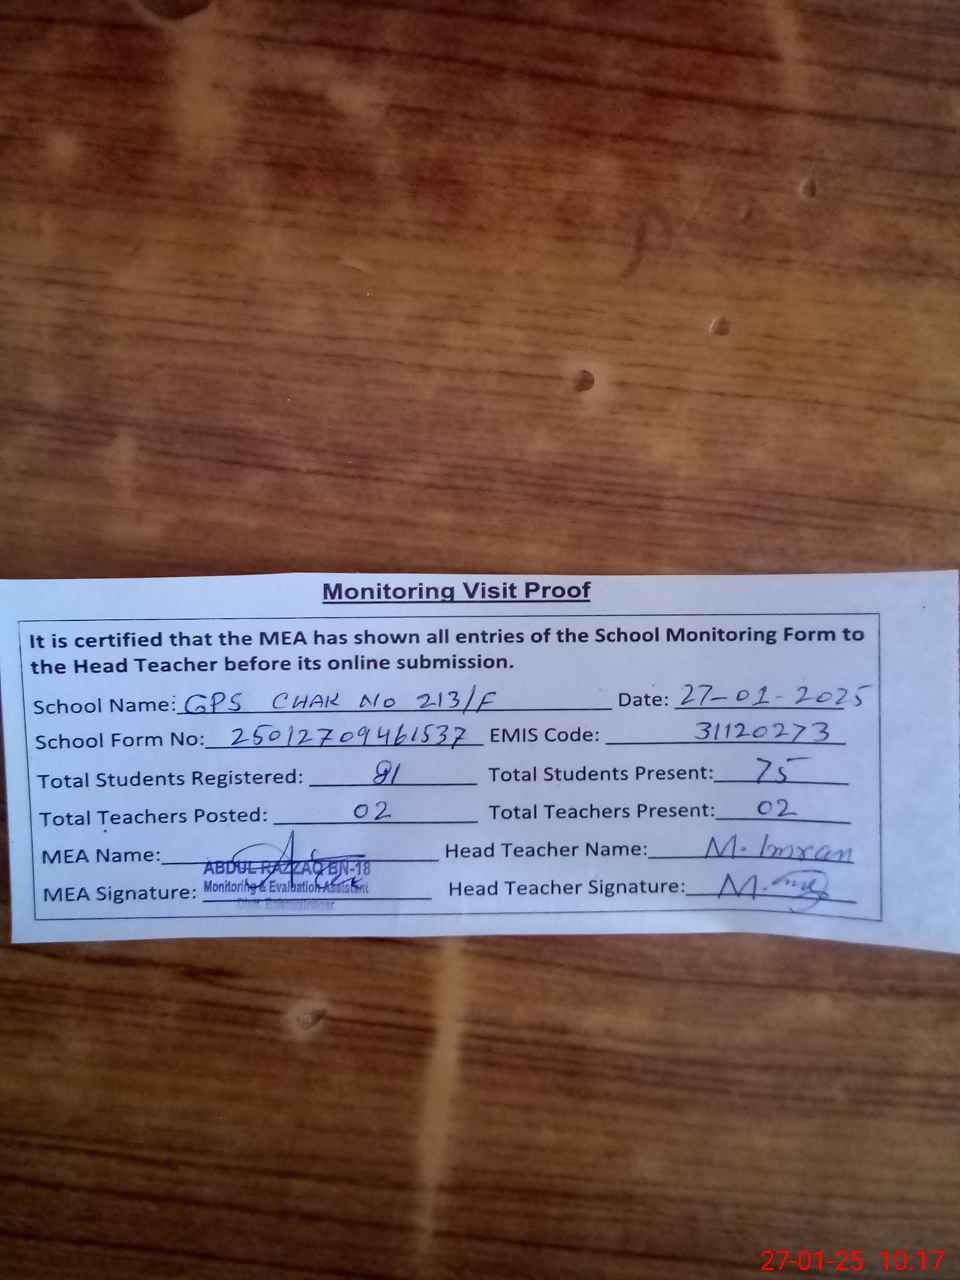 Monitoring Visit Proof
It is certified that the MEA has shown all entries of the School Monitoring Form to
the Head Teacher before its online submission.
School Name: GPS CHAK NO 213/F Date: 27-01-2025
School Form No: 25012709461537 EMIS Code: 31120273
Total Students Registered: 81 Total Students Present: 75
Total Teachers Posted: 02 Total Teachers Present: 02
MEA Name: Head Teacher Name: M. Imran
ABDUL RAZZAQ BN-18
MEA Signature: Monitoring & Evaluation Assistant Head Teacher Signature: M.
27-01-25 10:17